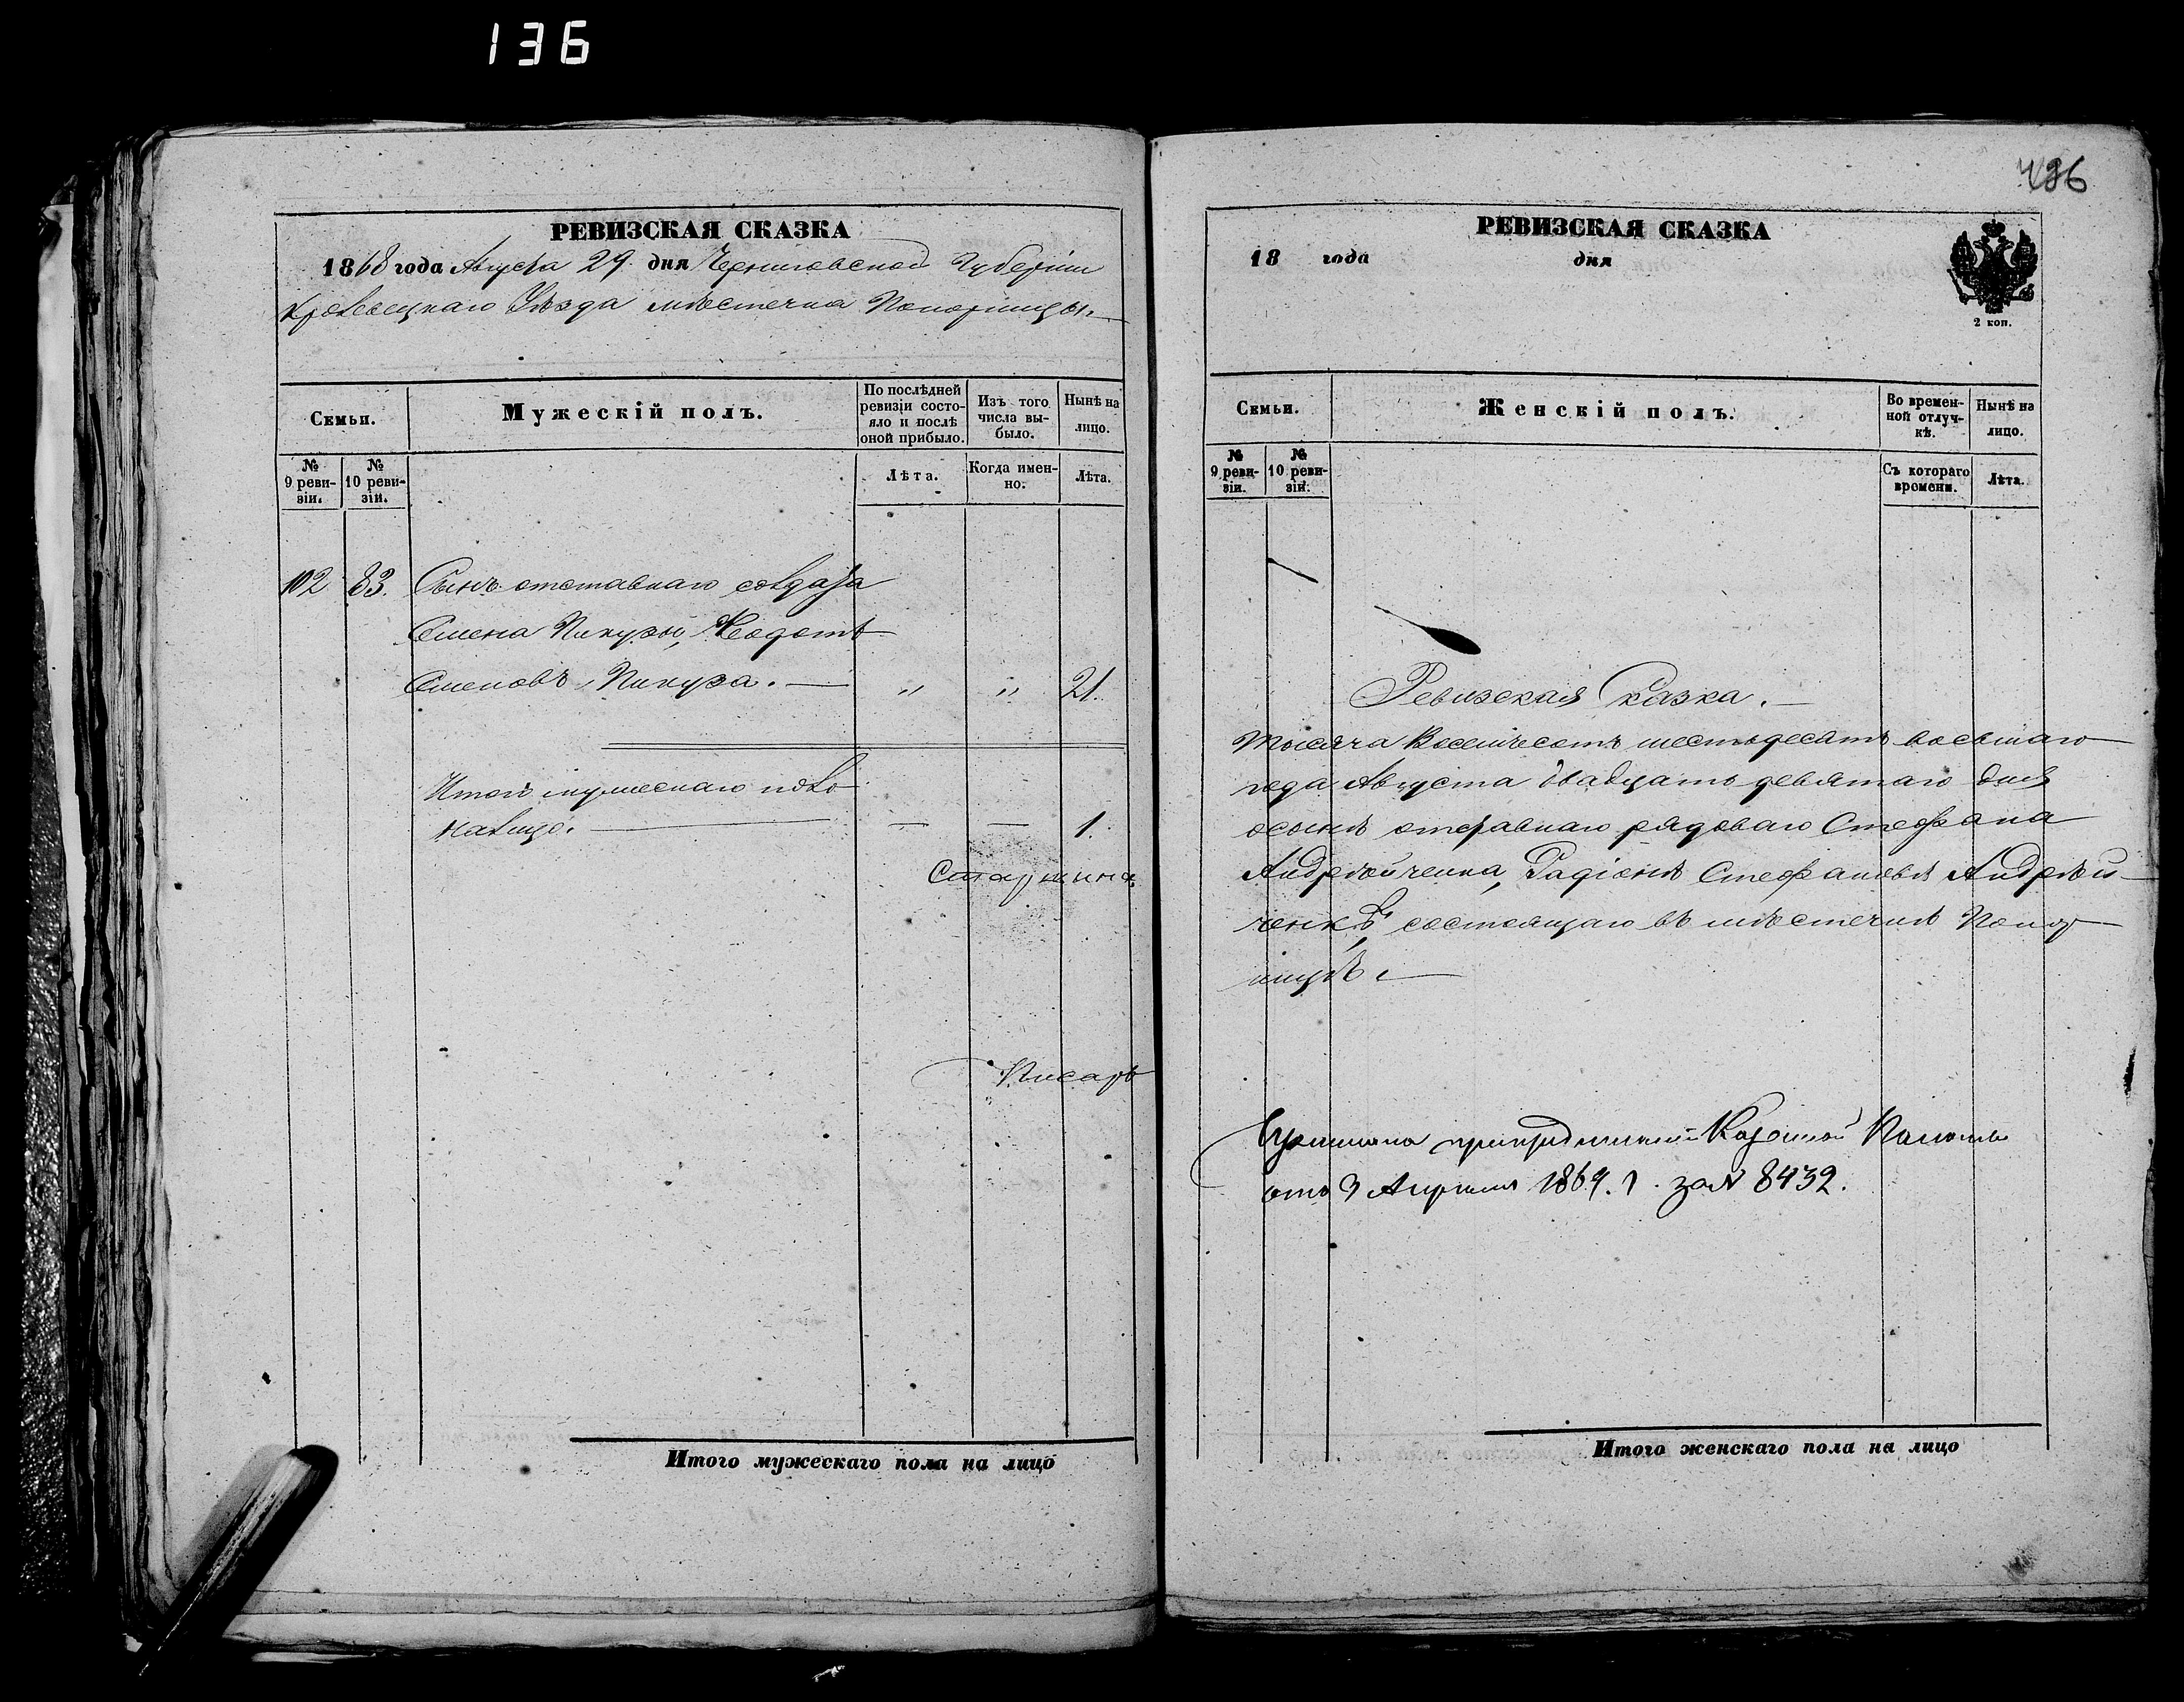 136
РЕВИЗСКАЯ СКАЗКА
1868 года Августа 29 дня Черниговской Губерніи
Кролевецкаго Уѣзда мѣстечка Понорницы.
Семьи.
Мужескій полъ.
По послѣдней ревизіи состояло и послѣ оной прибыло.
Изъ того числа выбыло.
Нынѣ на лицо.
№ 9 ревизіи.
№ 10 ревизіи.
Лѣта.
Когда именно.
Лѣта.
102 83. Сынъ отставнаго солдата
Семена Пикузы, Федотъ
Семеновъ Пикуза. — " " 21.
Итого мужескаго пола
налицо. — — — 1.
Старшина
Писарь
Итого мужескаго пола на лицо
486
РЕВИЗСКАЯ СКАЗКА
18 года дня
2 коп.
Семьи.
Женскій полъ.
Во временной отлучкѣ.
Нынѣ на лицо.
№ 9 ревизіи.
№ 10 ревизіи.
Съ котораго времени.
Лѣта.
Ревизская Сказка. —
Тысяча Восемьсотъ шестьдесятъ восьмаго
года Августа двадцать девятаго дня
осынѣ отставнаго рядоваго Стефана
Андрѣйченка, Радіонѣ Стефановѣ Андрѣй-
ченкѣ, состоящаго въ мѣстечкѣ Понор-
ницѣ. —
при предписаніи Казенной Палаты
отъ 3 Апреля 1869 г. за № 8432.
Итого женскаго пола на лицо